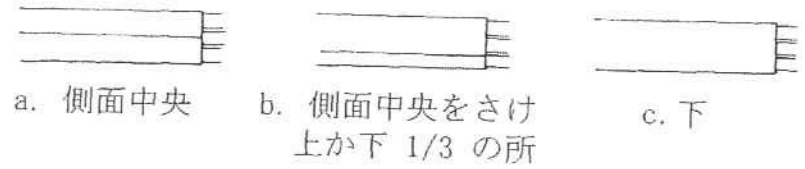 a. 側面中央
b. 側面中央をさけ
上か下 1/3 の所
c. 下